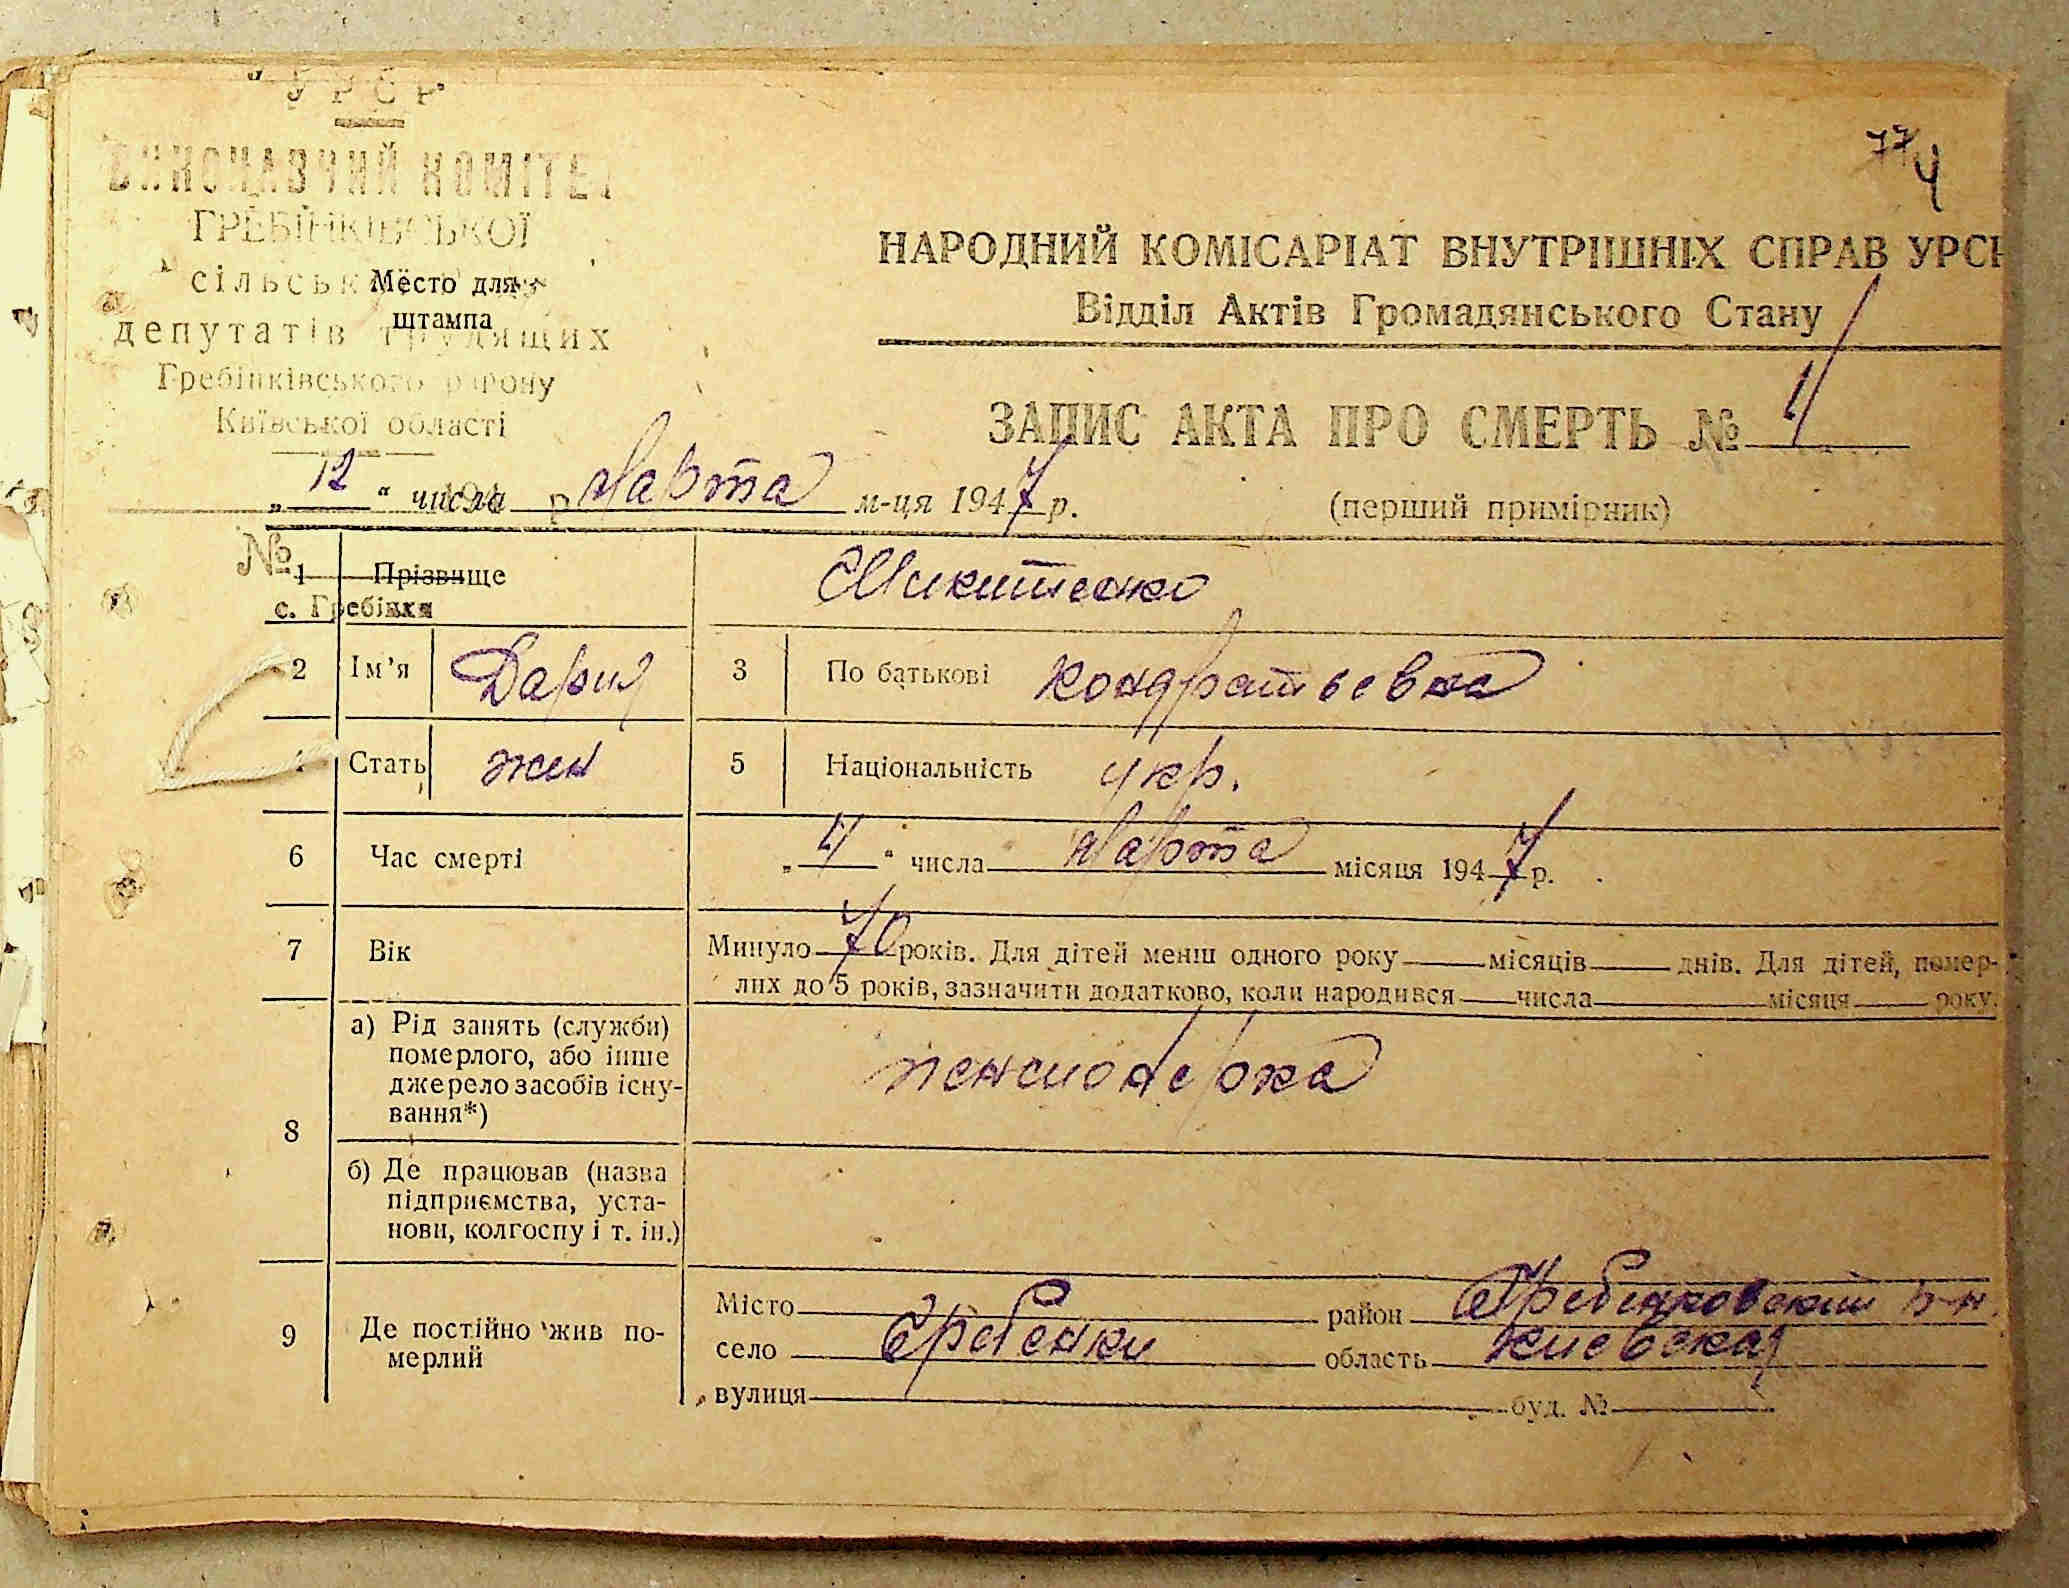 УРСР
ВИКОНАВЧИЙ КОМІТЕТ
ГРЕБІНКІВСЬКОЇ
сільськ
Место для
штампа
депутатів трудящих
Гребінківського району
Київської області
77
4
НАРОДНИЙ КОМІСАРІАТ ВНУТРІШНІХ СПРАВ УРСР
Відділ Актів Громадянського Стану
ЗАПИС АКТА ПРО СМЕРТЬ № 4
„12“ числа марта м-ця 1947 р. (перший примірник)
№
1 Прізвище Микитенко
с. Гребінки
2 Ім’я Дария 3 По батькові Кондратьевна
4 Стать жен 5 Національність укр.
6 Час смерті „4“ числа марта місяця 1947 р.
7 Вік Минуло 70 років. Для дітей менш одного року місяців днів. Для дітей, помер-
лих до 5 років, зазначити додатково, коли народився числа місяця року.
8 а) Рід занять (служби)
померлого, або інше
джерело засобів існу-
вання*)
пенсионерка
б) Де працював (назва
підприємства, уста-
нови, колгоспу і т. ін.)
9 Де постійно жив по-
мерлий
Місто район Гребенковский р-н.
село Гребенки область Киевская
вулиця буд. №